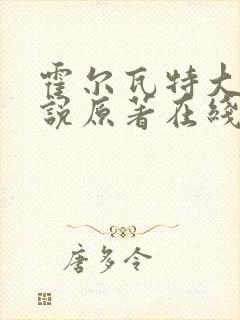 霍尔瓦特大
说原著在线
唐多令